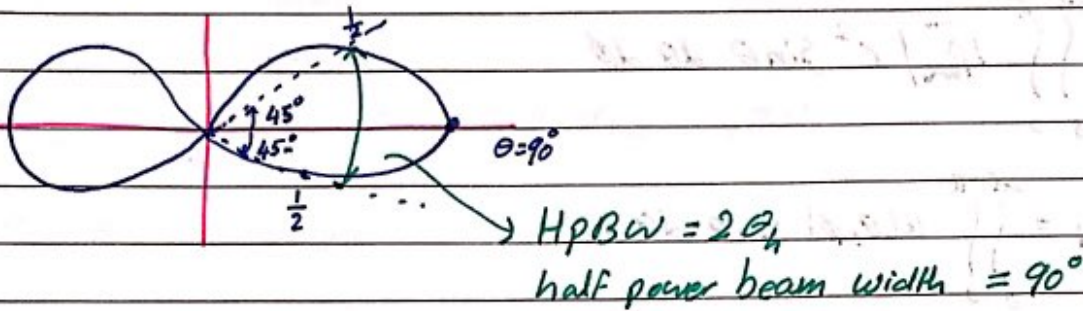 1/2
45°
45°
θ=90°
1/2
HPBW = 2θh
half power beam width = 90°